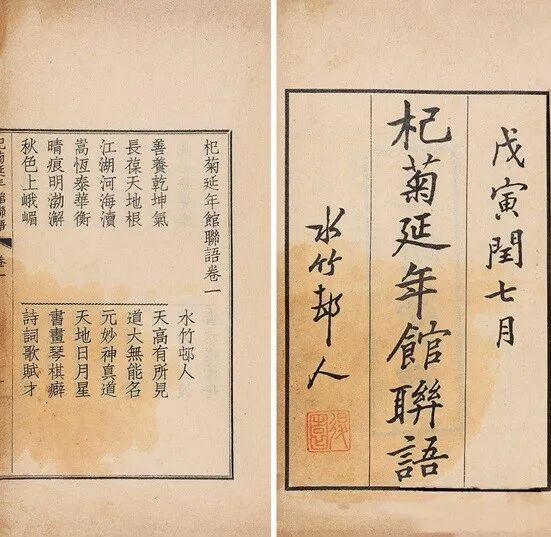 戊寅閏七月
杞菊延年館聯語
水竹邨人
杞菊延年館聯語卷一
水竹邨人
善養乾坤氣　天高有所見
長葆天地根　道大無能名
江湖河海瀆　元妙神真道
嵩恆泰華衡　天地日月星
晴痕明渤澥　書畫琴棋癖
秋色上峨嵋　詩詞歌賦才
杞菊延年館聯語　卷一